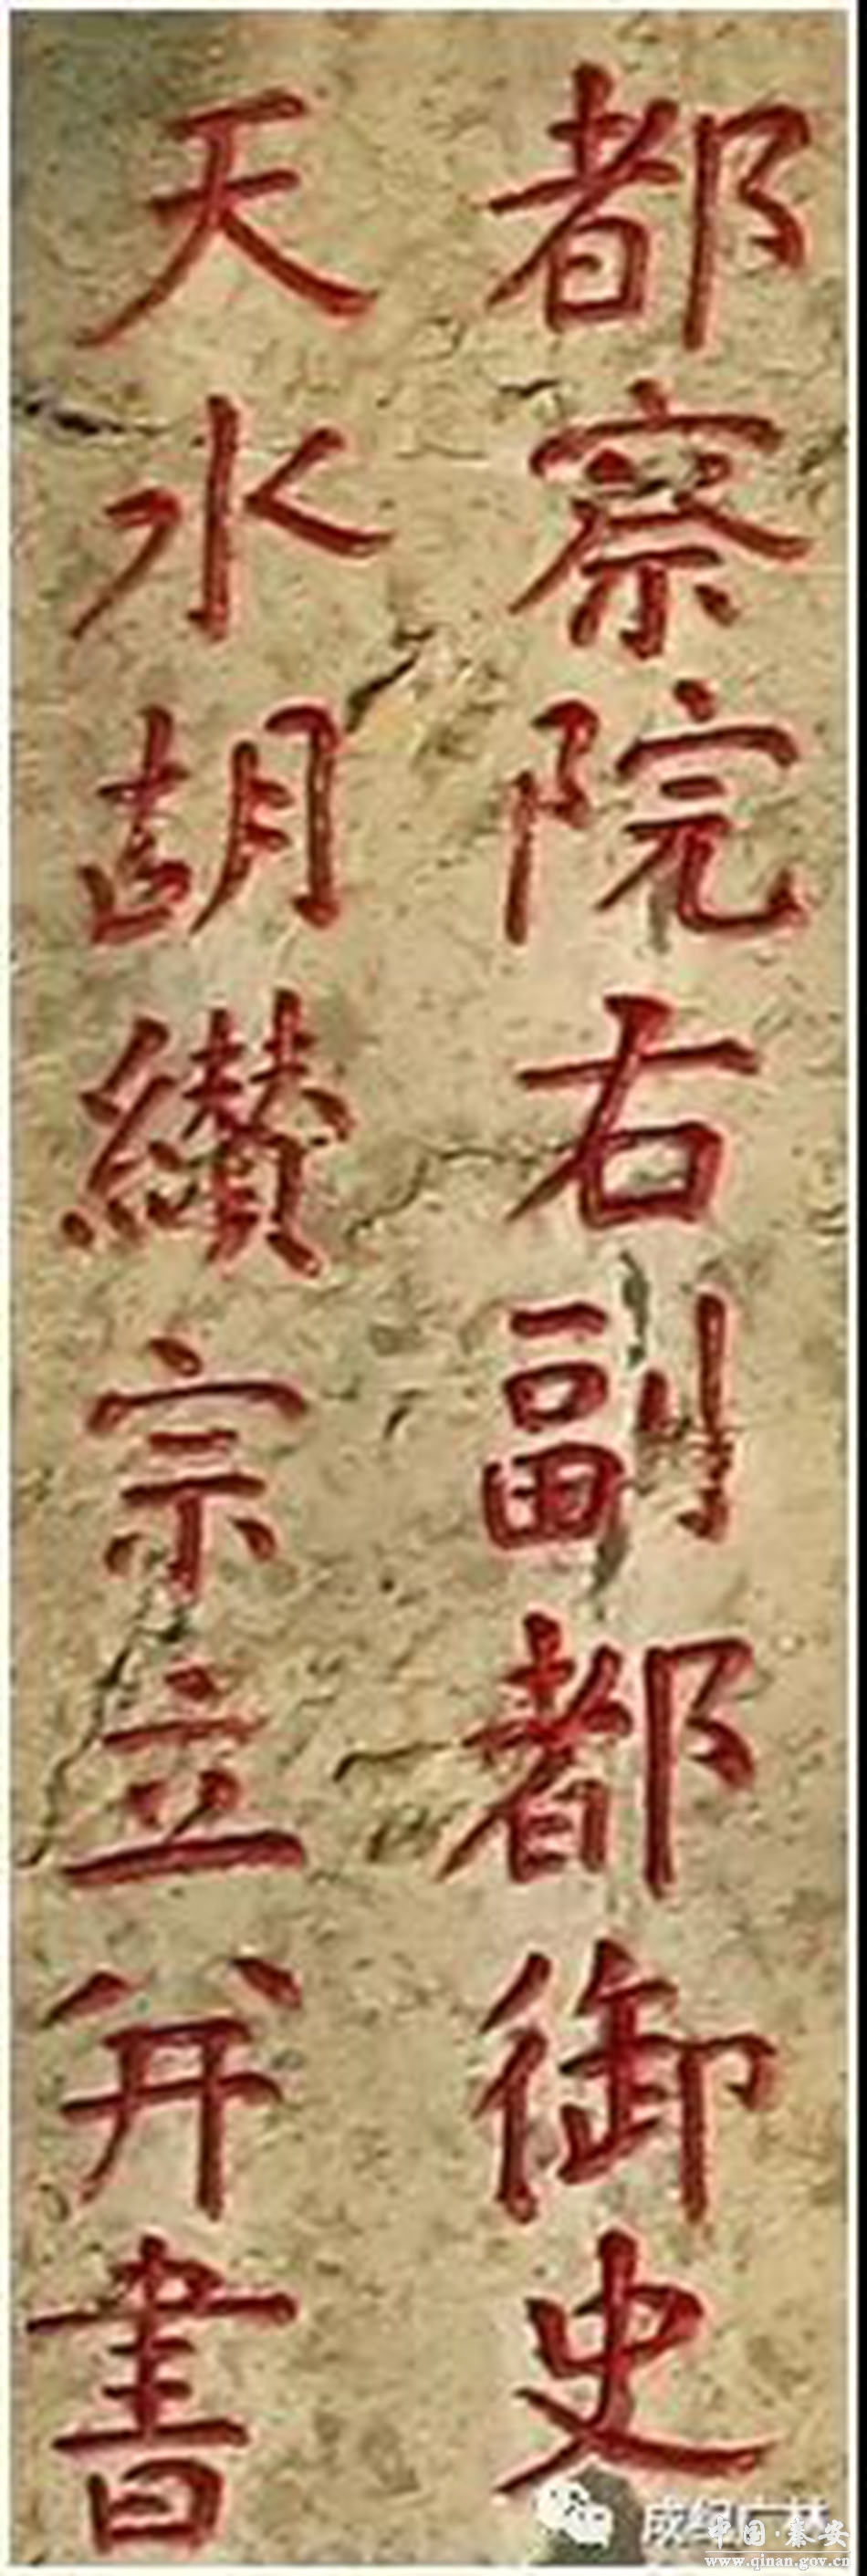 都察院右副都御史
天水胡纘宗立并書
成纪广林
中国·秦安
www.qinan.gov.cn